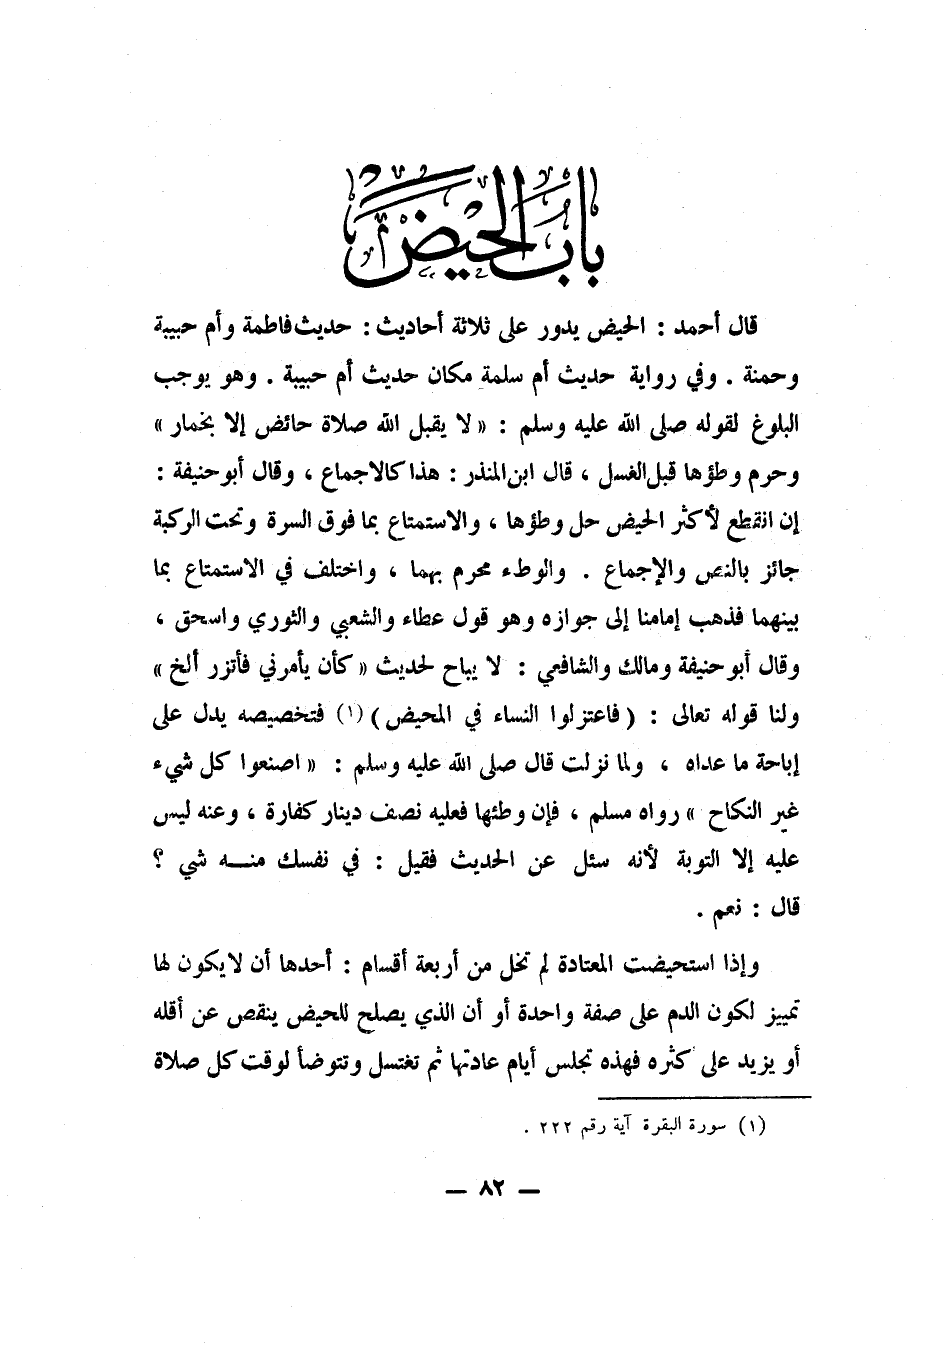 باب الحيض
قال أحمد : الحيض يدور على ثلاثة أحاديث : حديث فاطمة وأم حبيبة
وحمنة . وفي رواية حديث أم سلمة مكان حديث أم حبيبة . وهو يوجب
البلوغ لقوله صلى الله عليه وسلم : « لا يقبل الله صلاة حائض إلا بخمار »
وحرم وطؤها قبل الغسل ، قال ابن المنذر : هذا كالاجماع ، وقال أبو حنيفة :
إن انقطع لأكثر الحيض حل وطؤها ، والاستمتاع بما فوق السرة وتحت الركبة
جائز بالنص والإجماع . والوطء محرم بهما ، واختلف في الاستمتاع بما
بينهما فذهب إمامنا إلى جوازه وهو قول عطاء والشعبي والثوري واسحق ،
وقال أبو حنيفة ومالك والشافعي : لا يباح لحديث « كأن يأمرني فأتزر ألخ »
ولنا قوله تعالى : ( فاعتزلوا النساء في المحيض ) (١) فتخصيصه يدل على
إباحة ما عداه ، ولما نزلت قال صلى الله عليه وسلم : « اصنعوا كل شيء
غير النكاح » رواه مسلم ، فإن وطئها فعليه نصف دينار كفارة ، وعنه ليس
عليه إلا التوبة لأنه سئل عن الحديث فقيل : في نفسك منـــه شي ؟
قال : نعم .
وإذا استحيضت المعتادة لم تخل من أربعة أقسام : أحدها أن لا يكون لها
تمييز لكون الدم على صفة واحدة أو أن الذي يصلح للحيض ينقص عن أقله
أو يزيد على كثره فهذه تجلس أيام عادتها ثم تغتسل وتتوضأ لوقت كل صلاة
(١) سورة البقرة آية رقم ٢٢٢ .
— ٨٢ —